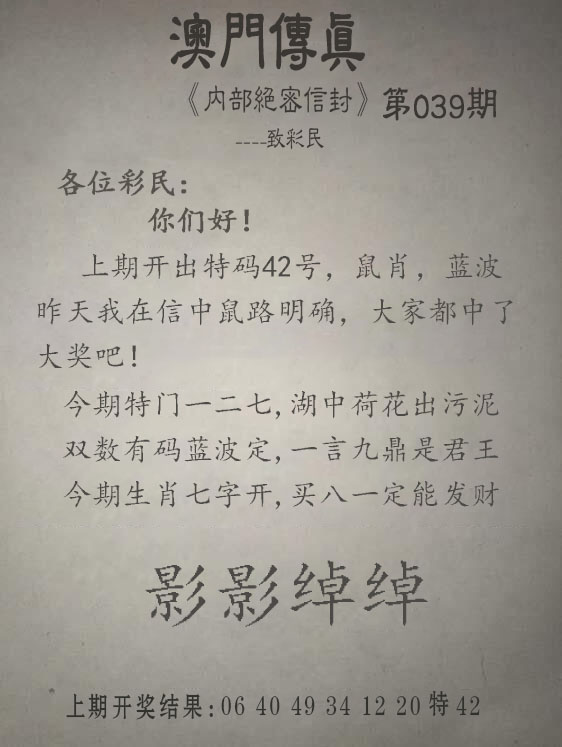 澳門傳眞
《内部絕密信封》第039期
----致彩民
各位彩民：
你们好！
上期开出特码42号，鼠肖，蓝波
昨天我在信中鼠路明确，大家都中了
大奖吧！
今期特门一二七,湖中荷花出污泥
双数有码蓝波定,一言九鼎是君王
今期生肖七字开,买八一定能发财
影影绰绰
上期开奖结果:06 40 49 34 12 20 特 42